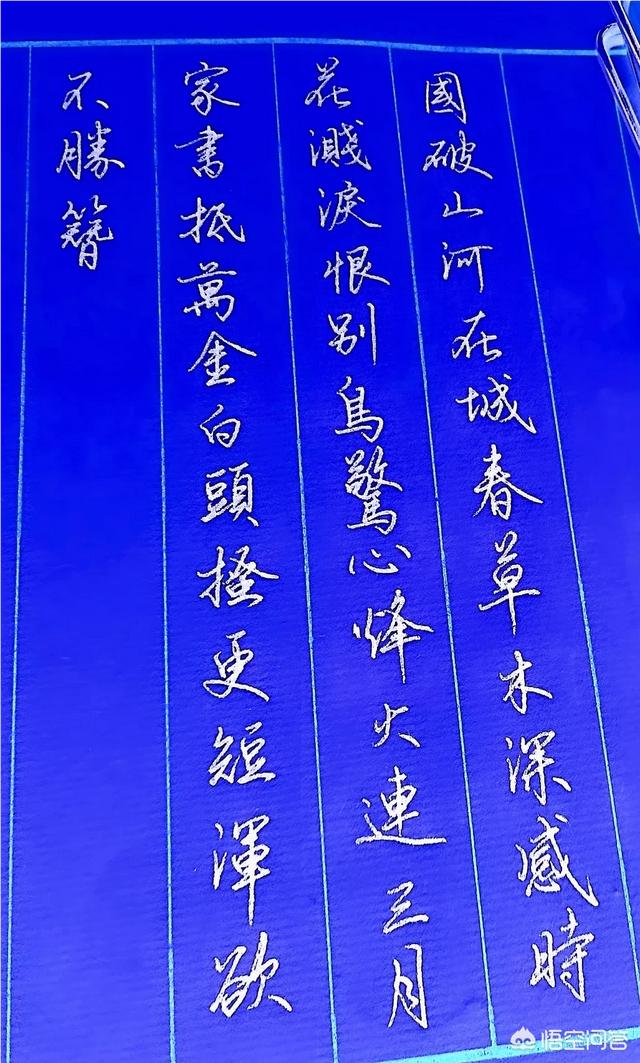 國破山河在城春草木深感時
花濺淚恨别鳥驚心烽火連三月
家書抵萬金白頭搔更短渾欲
不勝簪
悟空问答